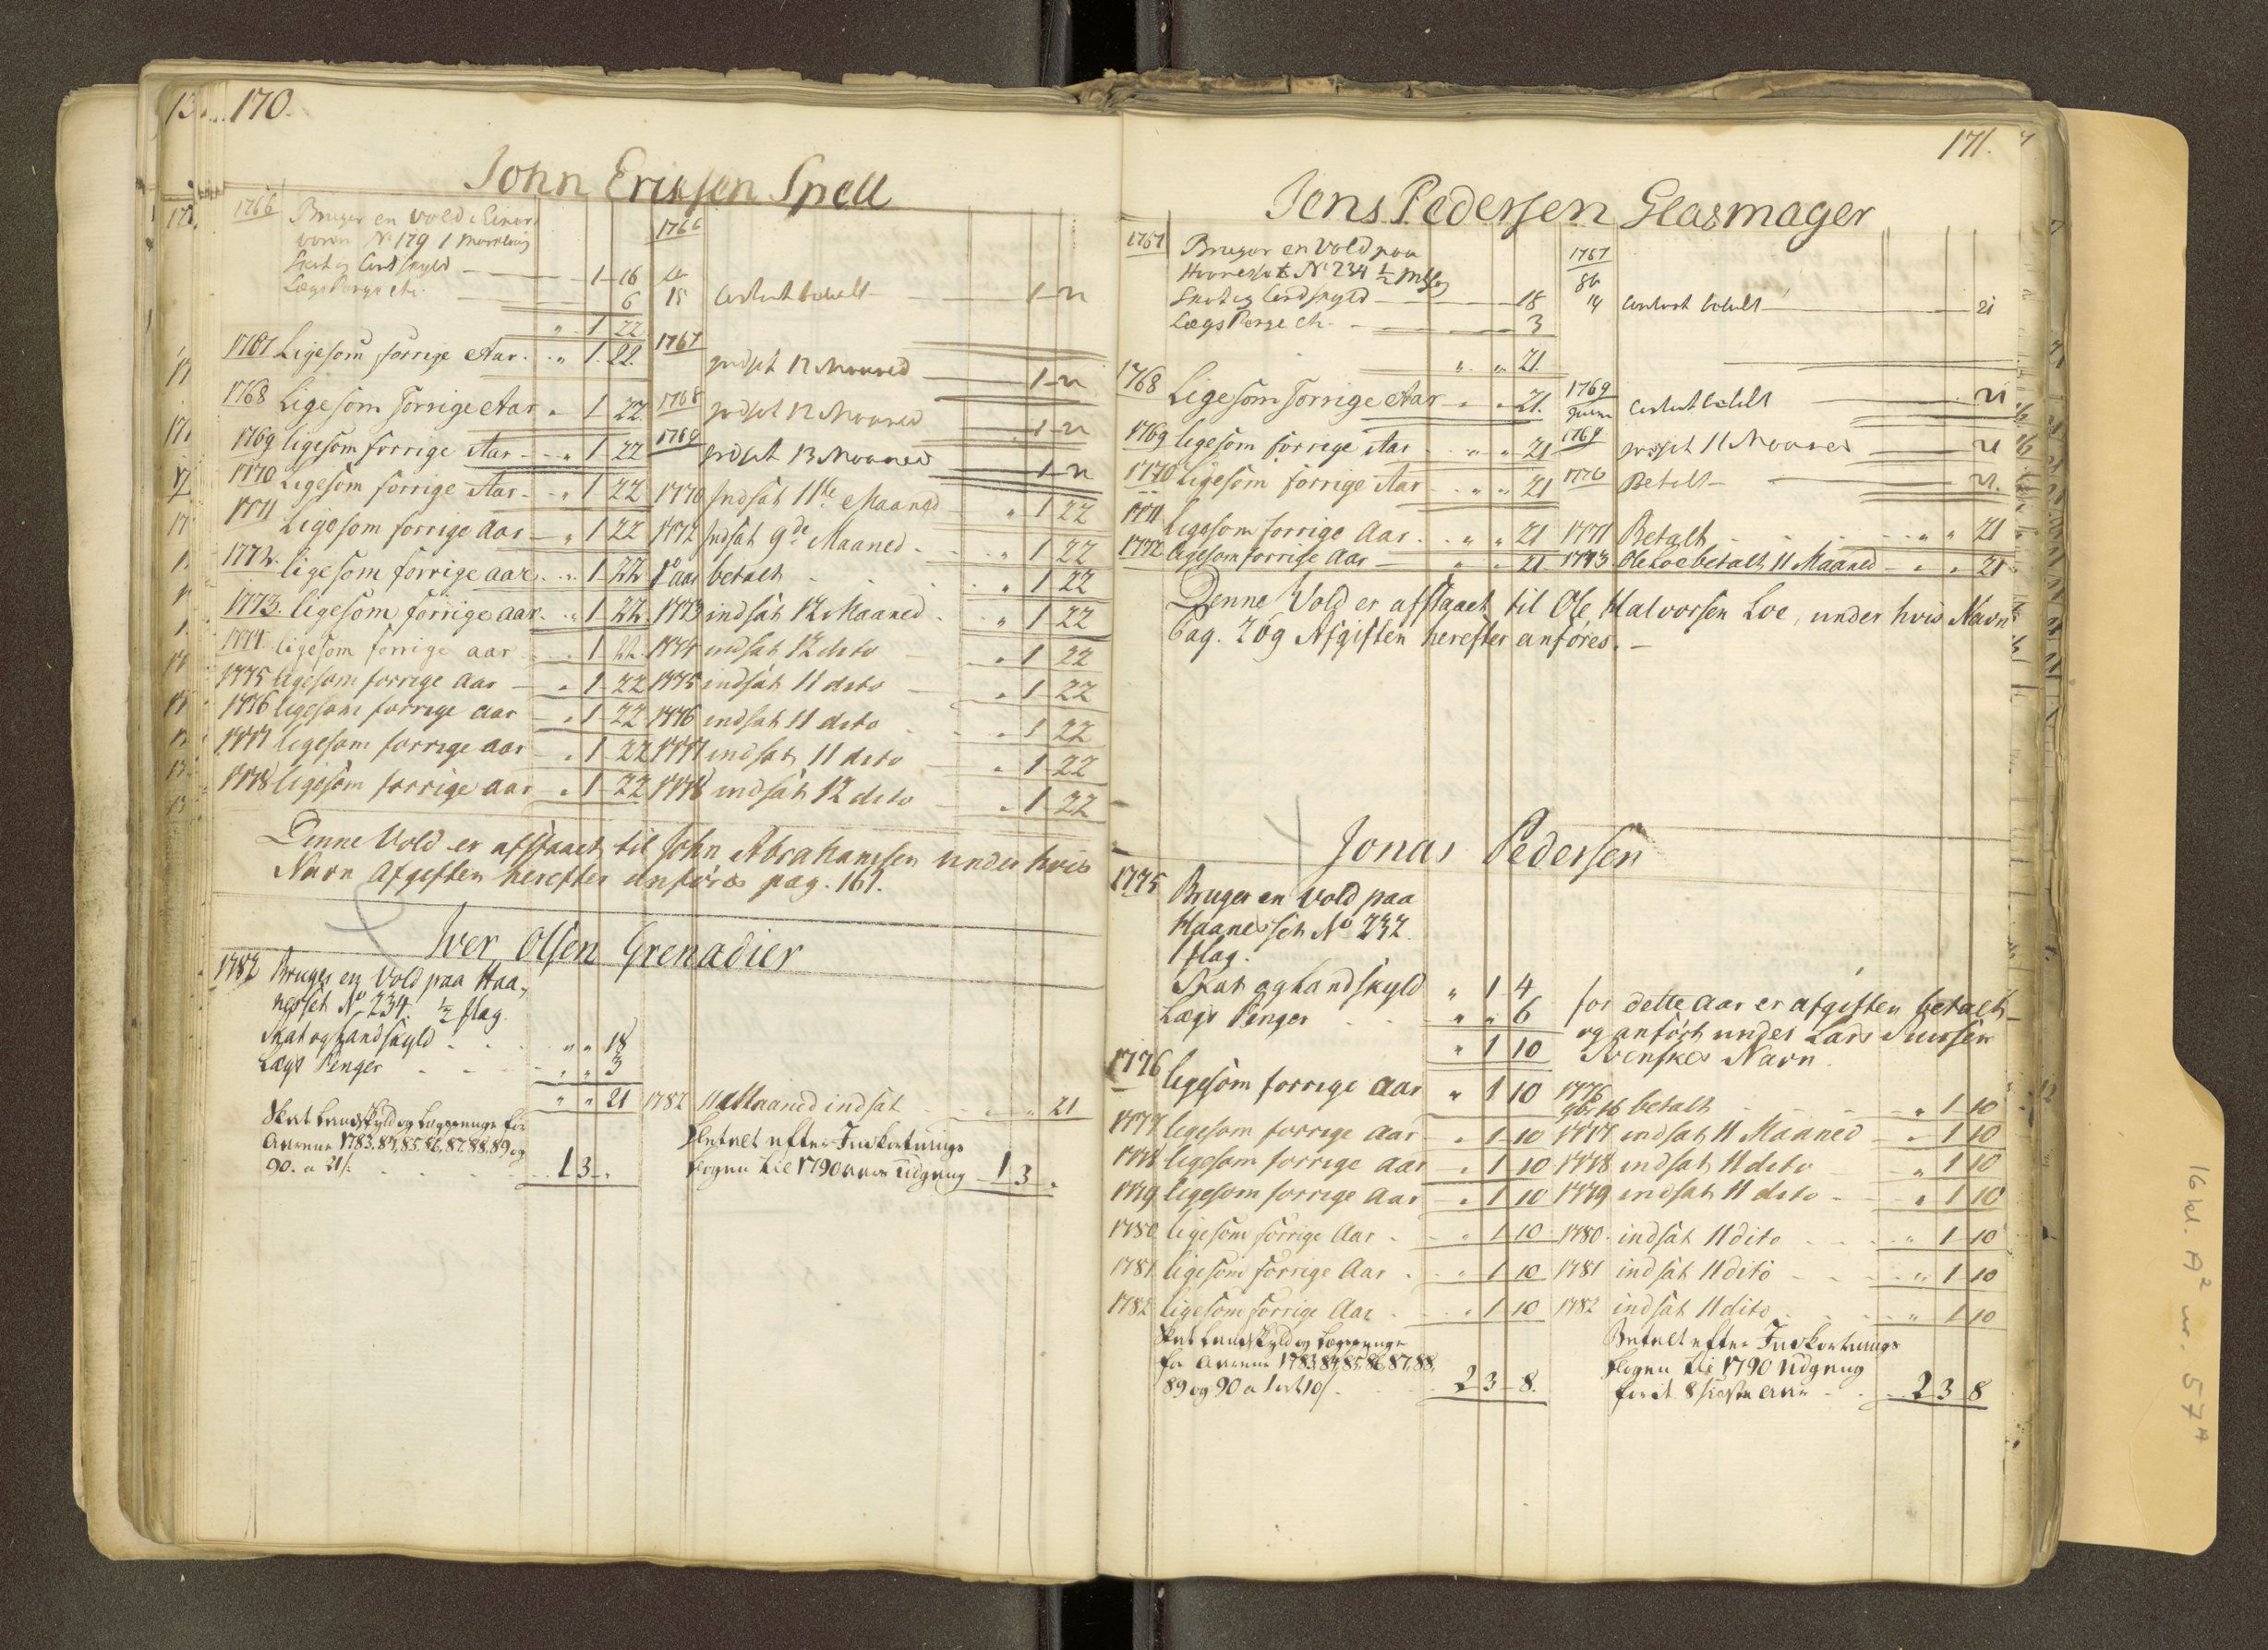 170.
John Eriksen Spell
1766 Bruger en Vold i Einer
voren No 179 1 
Skat og Landskyld 1 16
Lægs Penge 6
" 1 22
1766
18 Contant betalt 1 22
1767 Ligesom forrige Aar " 1 22
1767 indsat 12 Maaned 1 22
1768 Ligesom forrige Aar " 1 22 1768 indsat 12 Maaned 1 22
1769 ligesom forrige Aar " 1 22 1769 indsat 13 Maaned 1 22
1770 Ligesom forrige Aar " 1 22 1770 Indsat 11te Maaned " 1 22
1771 Ligesom forrige Aar " 1 22 1772 Indsat 9de Maaned " 1 22
1772. ligesom forrige aar " 1 22 aar betalt " 1 22
1773. ligesom forrige aar " 1 22 1773 indsat 12 Maaned " 1 22
1774 ligesom forrige aar " 1 22 1774 indsat 12 dito " 1 22
1775 ligesom forrige aar " 1 22 1775 indsat 11 dito " 1 22
1776 ligesom forrige aar " 1 22 1776 indsat 11 dito " 1 22
1777 ligesom forrige aar " 1 22 1777 indsat 11 dito " 1 22
1778 ligesom forrige aar " 1 22 1778 indsat 12 dito " 1 22
Denne Vold er afstaaet til John Abrahamsen under hvis
Navn Afgiften herefter anføres pag. 167.
Iver Olsen Grenadier
1782 Bruger en Vold paa Haa,
nesset No 234. ½ flag.
Skat og Landskyld " " 18
Lægs Penger " " 3
" " 21 1782 11 Maaned indsat " " 21
Skat Landskyld og Lægspenge for
Aarene 1783. 84, 85. 86, 87. 88. 89 og
90. a 21 s. 1 3 "
Betalt efter Indkortnings
bogen til 1790 aars Udgang 1 3 "
171.
Jens Pedersen Glasmager
1767 Bruger en Vold paa
Haanesset No 234 ½ 
Skat og Landskyld 18
Lægs Penge 3
" " 21
1767
Contant betalt 21
1768 Ligesom Forrige Aar " " 21. 1769 Contant betalt 21
1769 ligesom forrige Aar " " 21 1769 indsat 11 Maaned 21
1770 ligesom forrige Aar " " 21 1770 Betalt 21.
1771 Ligesom forrige Aar " " 21 1771 Betalt " " 21
1772 ligesom forrige Aar " " 21 1773 Ole Loe betalt 11 Maaned " " 21
Denne Vold er afstaaet til Ole Halvorsen Loe, under hvis Navn
Pag. 209 Afgiften herefter anføres.
Jonas Pedersen
1775 Bruger en Vold paa
Haanesset No 232.
1 flag.
Skat og Landskyld " 1 4
Lægs Penger " " 6
" 1 10
for dette aar er afgiften betalt
og anført under Lars 
Svenskes Navn
1776 ligesom forrige aar " 1 10 1776
9br 16 betalt " 1 10
1777 ligesom forrige aar " 1 10 1777 indsat 11 Maaned " 1 10
1778 ligesom forrige aar " 1 10 1778 indsat 11 dito " 1 10
1779 ligesom forrige aar " 1 10 1779 indsat 11 dito " 1 10
1780 ligesom forrige Aar " 1 10 1780 indsat 11 dito " 1 10
1781 ligesom forrige Aar " 1 10 1781 indsat 11 dito " 1 10
1782 ligesom forrige Aar " 1 10 1782 indsat 11 dito " 1 10
Skat Landskyld og Lægspenge
for Aarene 1783. 84. 85. 86. 87. 88,
89 og 90 a 1 ort 10 s. 2 3 8.
Betalt efter Indkortnings
bogen til 1790 Udgang
for de 8 sidste Aar 2 3 8
16 kl. A² nr. 57ᴬ